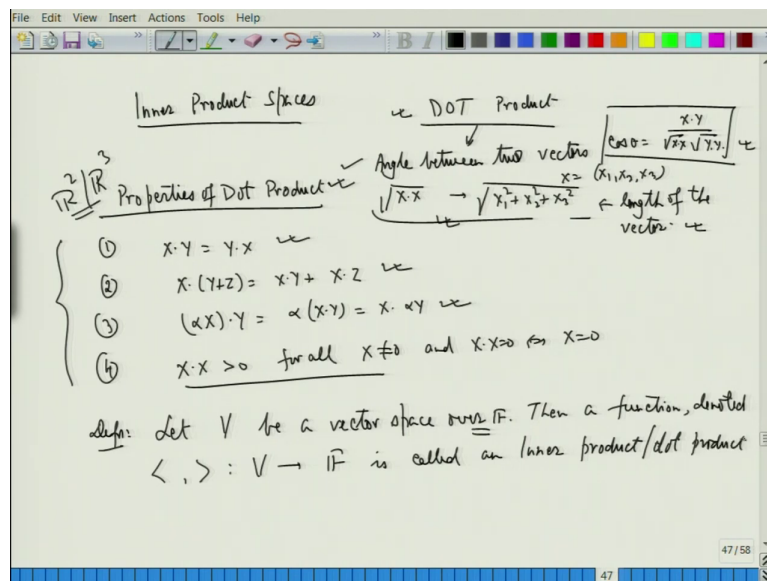 File Edit View Insert Actions Tools Help
Inner Product Spaces
DOT Product
Angle between two vectors
cos θ = X·Y / √X·X √Y·Y
X = (x₁, x₂, x₃)
√X·X → √x₁² + x₂² + x₃² ← length of the vector.
ℝ² / ℝ³ Properties of Dot Product
① X·Y = Y·X
② X·(Y+Z) = X·Y + X·Z
③ (αX)·Y = α(X·Y) = X·αY
④ X·X > 0 for all X ≠ 0 and X·X=0 ⇔ X=0
Defn: Let V be a vector space over 𝔽. Then a function, denoted
< , > : V → 𝔽 is called an Inner product/dot product
47/58
47